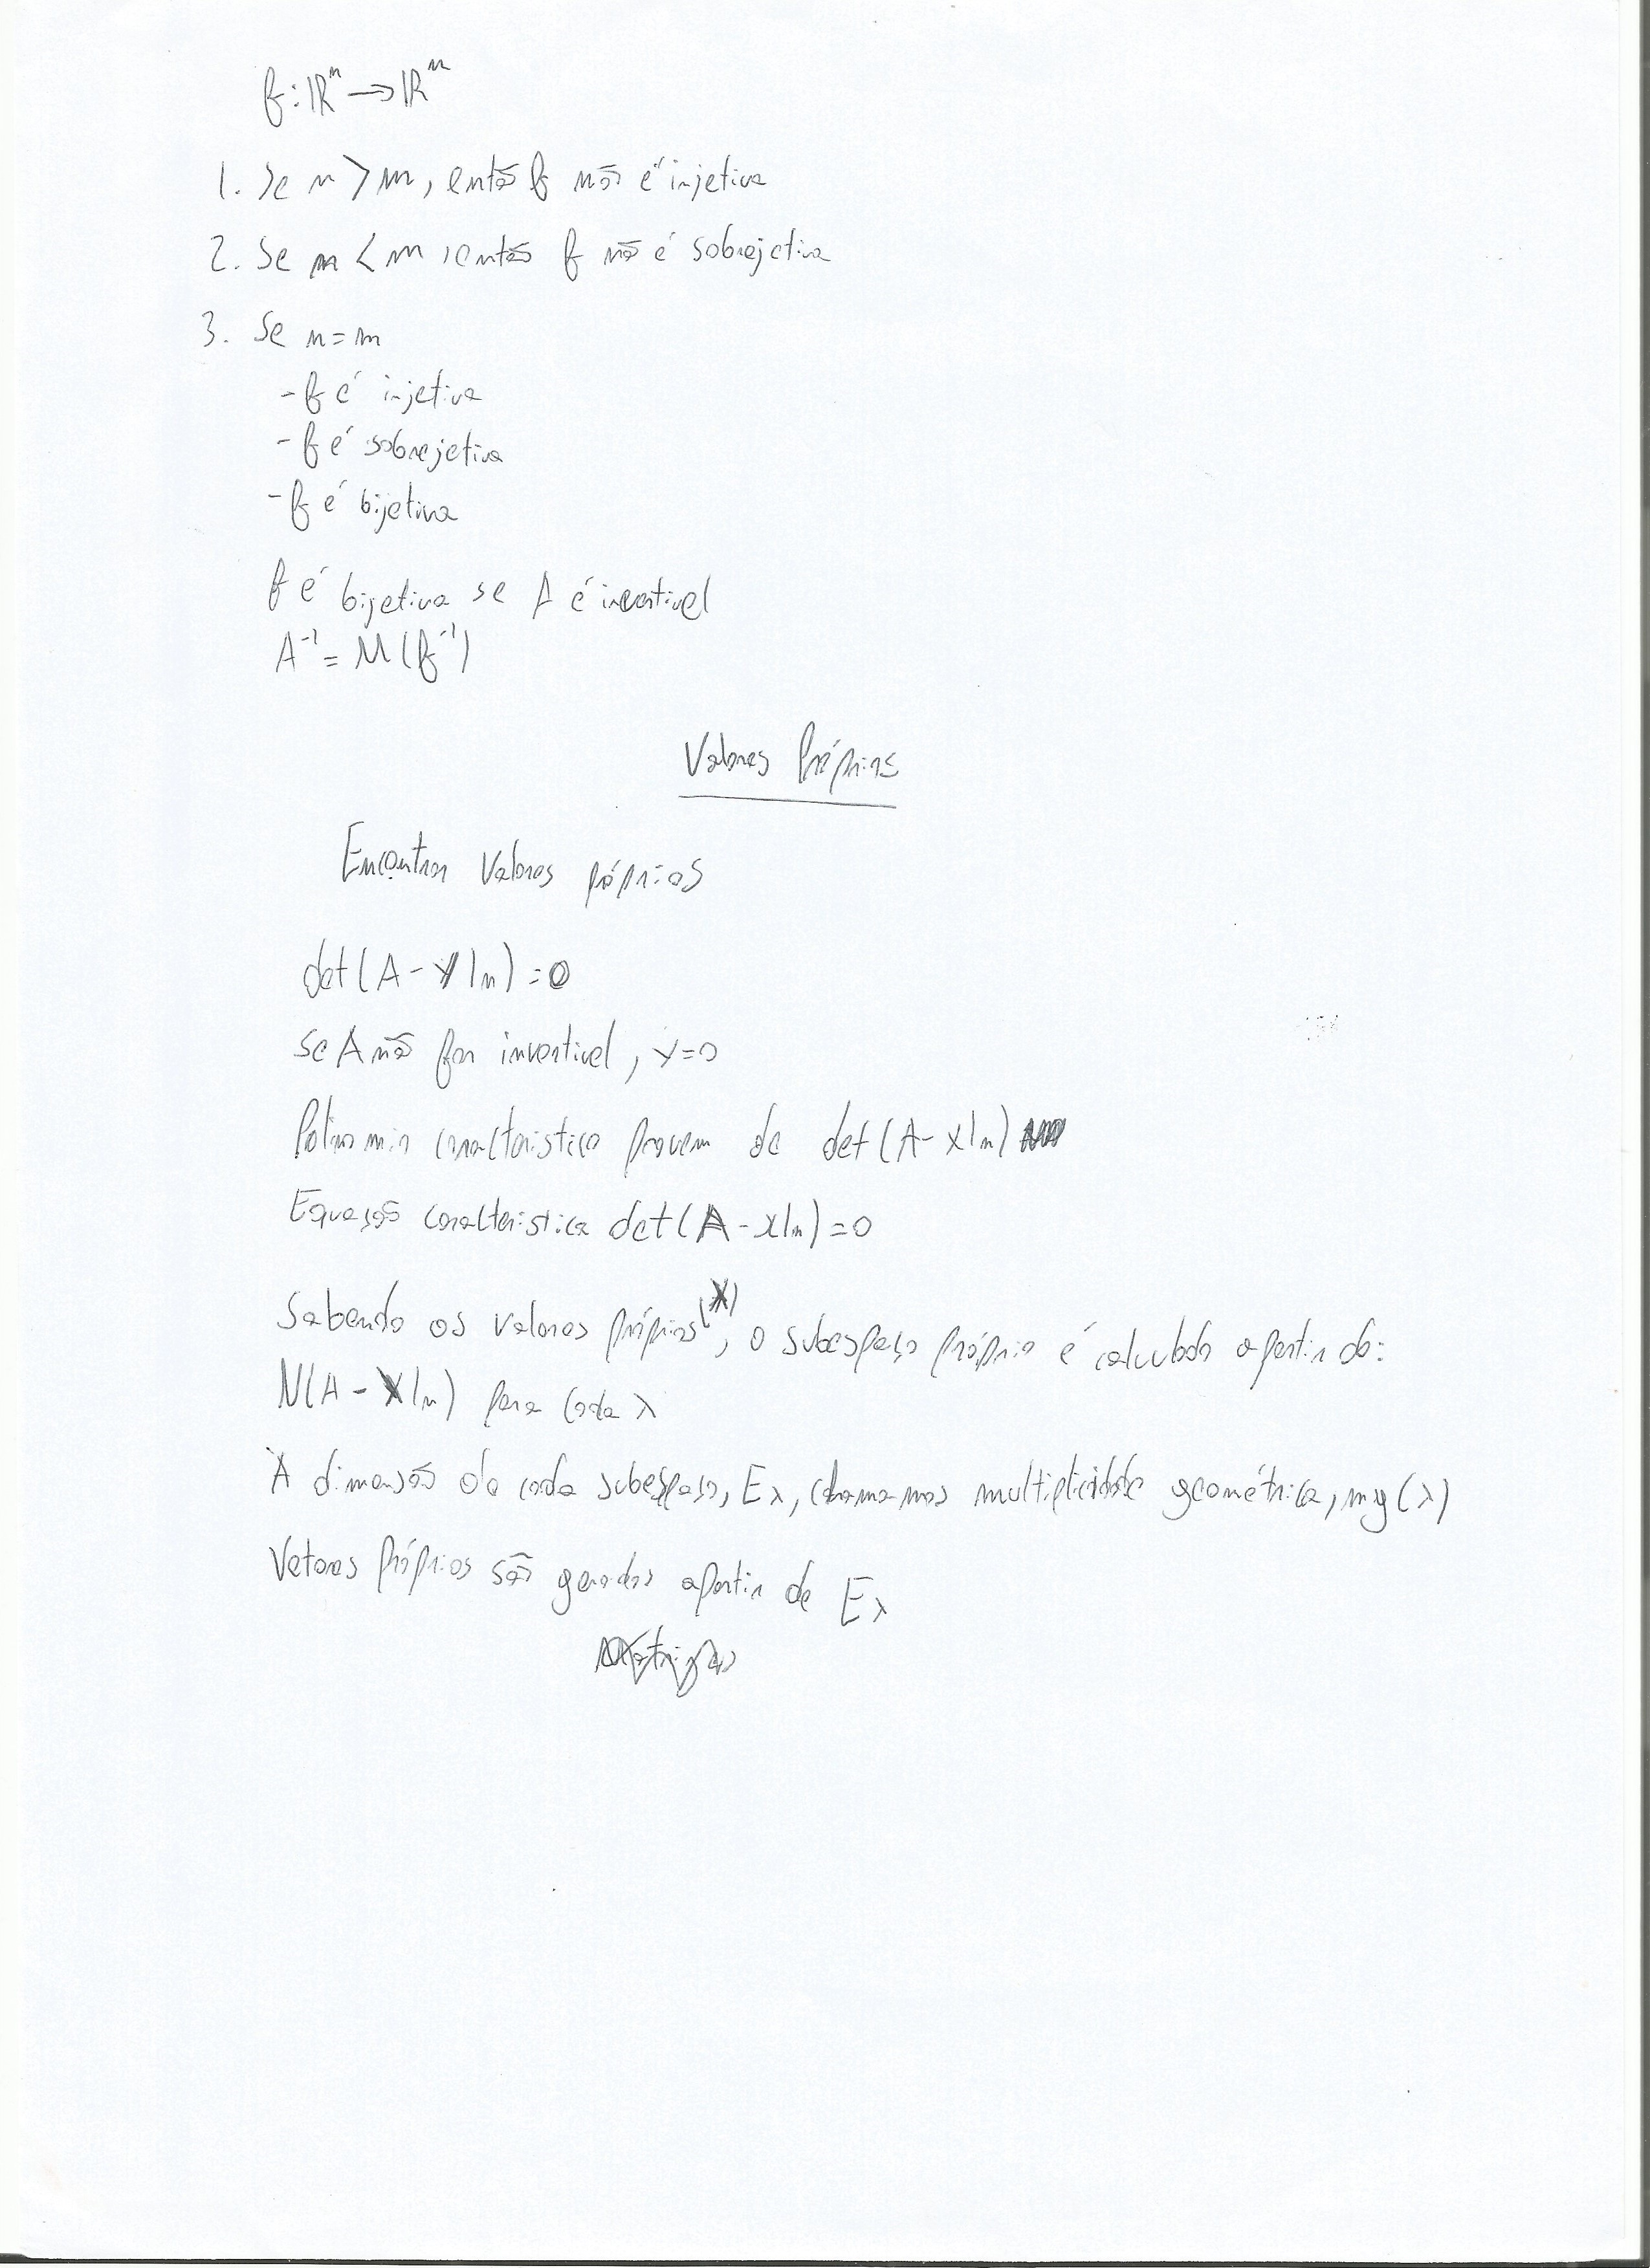 f: ℝⁿ → ℝᵐ
1. Se n > m, então f não é injetiva
2. Se n < m, então f não é sobrejetiva
3. Se n = m
- f é injetiva
- f é sobrejetiva
- f é bijetiva
f é bijetiva se A é invertivel
A⁻¹ = M(f⁻¹)
Valores Próprios
Encontrar Valores próprios
det(A - λIn) = 0
se A não for invertivel, λ=0
Polinomio caracteristico provem de det(A - λIn)
Equação caracteristica det(A - λIn) = 0
Sabendo os valores próprios(λ), o subespaço próprio é calculado apartir do:
N(A - λIn) para cada λ
A dimensão de cada subespaço, Eλ, chamamos multiplicidade geométrica, mg(λ)
Vetores Próprios são gerados apartir de Eλ